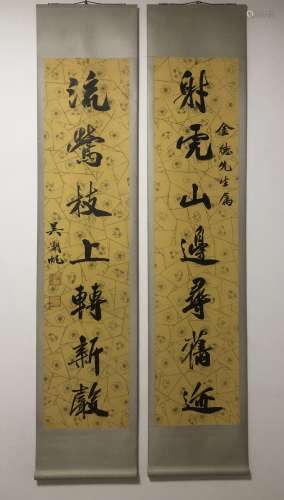 射虎山邊尋舊迹
金德先生属
流鶯枝上轉新聲
吳湖帆